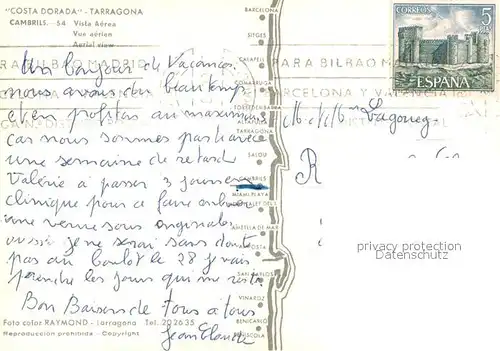 "COSTA DORADA" - TARRAGONA
CAMBRILS.- 54 Vista Aérea
Vue aérien
Aerial view
Un bonjour de Vacances
nous avons du beau temps
et en profitons au maximum
car nous sommes pas
une semaine de retard
Valérie a passer 3 jours en
clinique pour ce faire enlever
une verrue sous
aussi je ne serai sans doute
pas au boulot le 28 je vais
prendre les jours qui me reste.
Bon Baisers de tous à tous
Jean Claude
Foto color RAYMOND - Tarragona Tel. 202635
Reproducción prohibida - Copyright
BARCELONA
SITGES
CALAFELL
COMARRUGA
TORREDEMBARRA
ALTAFULLA
TARRAGONA
SALOU
CAMBRILS
MIAMI-PLAYA
AMETLLA DE MAR
SAN CARLOS
VINAROZ
BENICARLO
PEÑISCOLA
CORREOS
5
PTAS
ESPAÑA
PARA BILBAO MADRID
PARA BILBAO M
BARCELONA Y VALENCIA
privacy protection
Datenschutz